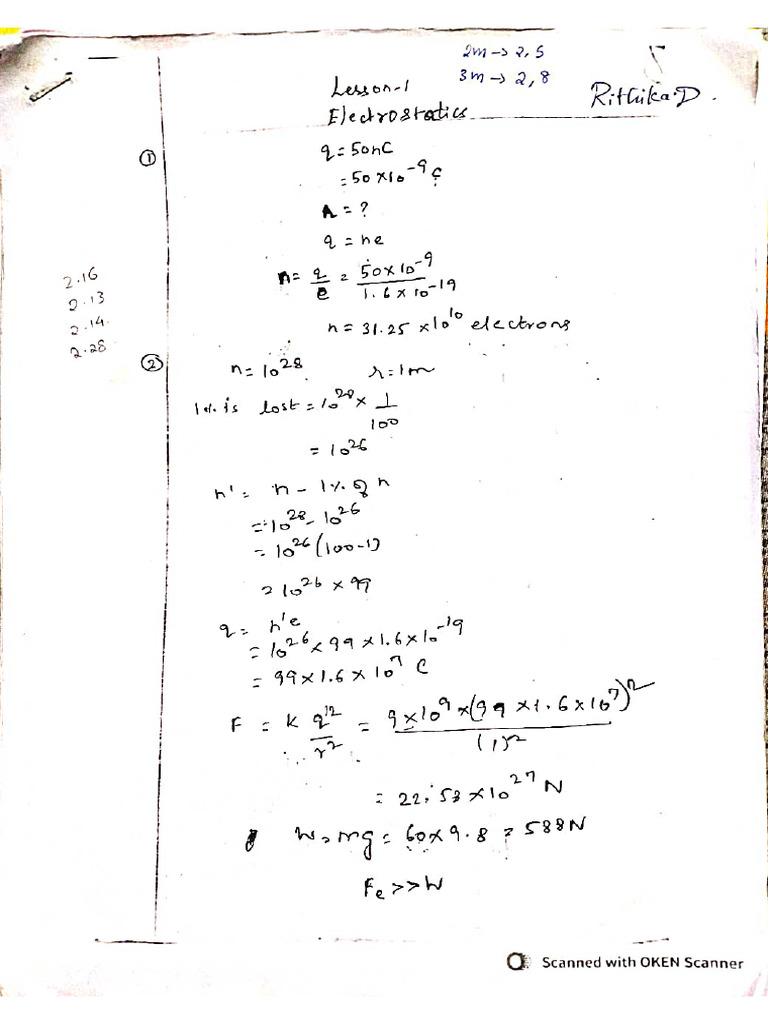 2m → 2, 5
3m → 2, 8
5
Rithika.D.
Lesson-1
Electrostatics
①
q = 50nC
= 50 × 10⁻⁹ C
n = ?
q = ne
n = q/e = 50×10⁻⁹ / 1.6 × 10⁻¹⁹
n = 31.25 × 10¹⁰ electrons
2.16
2.13
2.14.
2.28
②
n = 10²⁸ r = 1m
1% is lost = 10²⁸ × 1/100
= 10²⁶
n' = n - 1% of n
= 10²⁸ - 10²⁶
= 10²⁶ (100-1)
= 10²⁶ × 99
q = n'e
= 10²⁶ × 99 × 1.6 × 10⁻¹⁹
= 99 × 1.6 × 10⁷ C
F = K q'²/r² = 9×10⁹ × (99 × 1.6 × 10⁷)² / (1)²
= 22.53 × 10²⁷ N
W = mg = 60 × 9.8 = 588N
Fₑ >> W
Scanned with OKEN Scanner